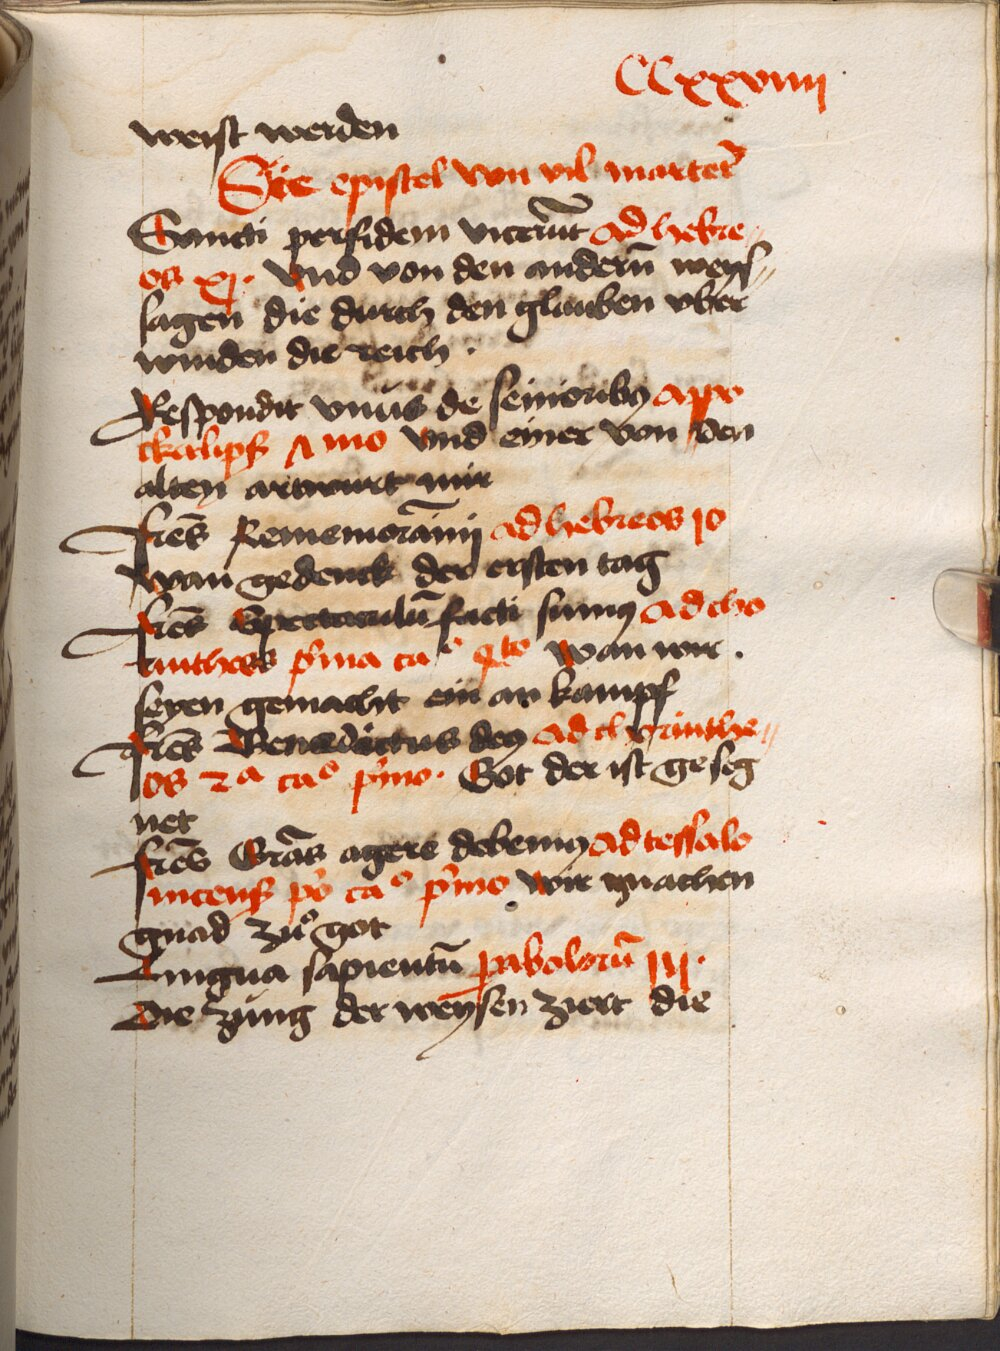 CCxxviiii
weist werden
Die epistel von vil marter̄
Sancti per fidem vicer̄ut ad hebre„
os xj. Vnd von den andern̄ weys„
sagen die durch den glauben vber
winden die reich .
Respondit vnus de seinoribꝫ appo
ckalips̄ Λ mo Vnd einer von den
alten antwurt mir
Fres̄ Rememorāmi ad hebreos 10
Wan gedenck der ersten tag
Fres̄ Spectaculū facti sumꝫ ad cho
rintheos p̄ma caº qto Wan wir .
seyen gemacht ein an kampf
Fres̄ Benedictus deꝫ ad chorinthe„
os 2ª caº p̄mo. Got der ist geseg
net
Fres̄ Grās agere debemꝫ ad tessalo
nicens̄ po caº p̄mo wir machen
gnad zuͦ got
Lingua sapientū p̱abolorū iij.
Die zung der weysen ziert die